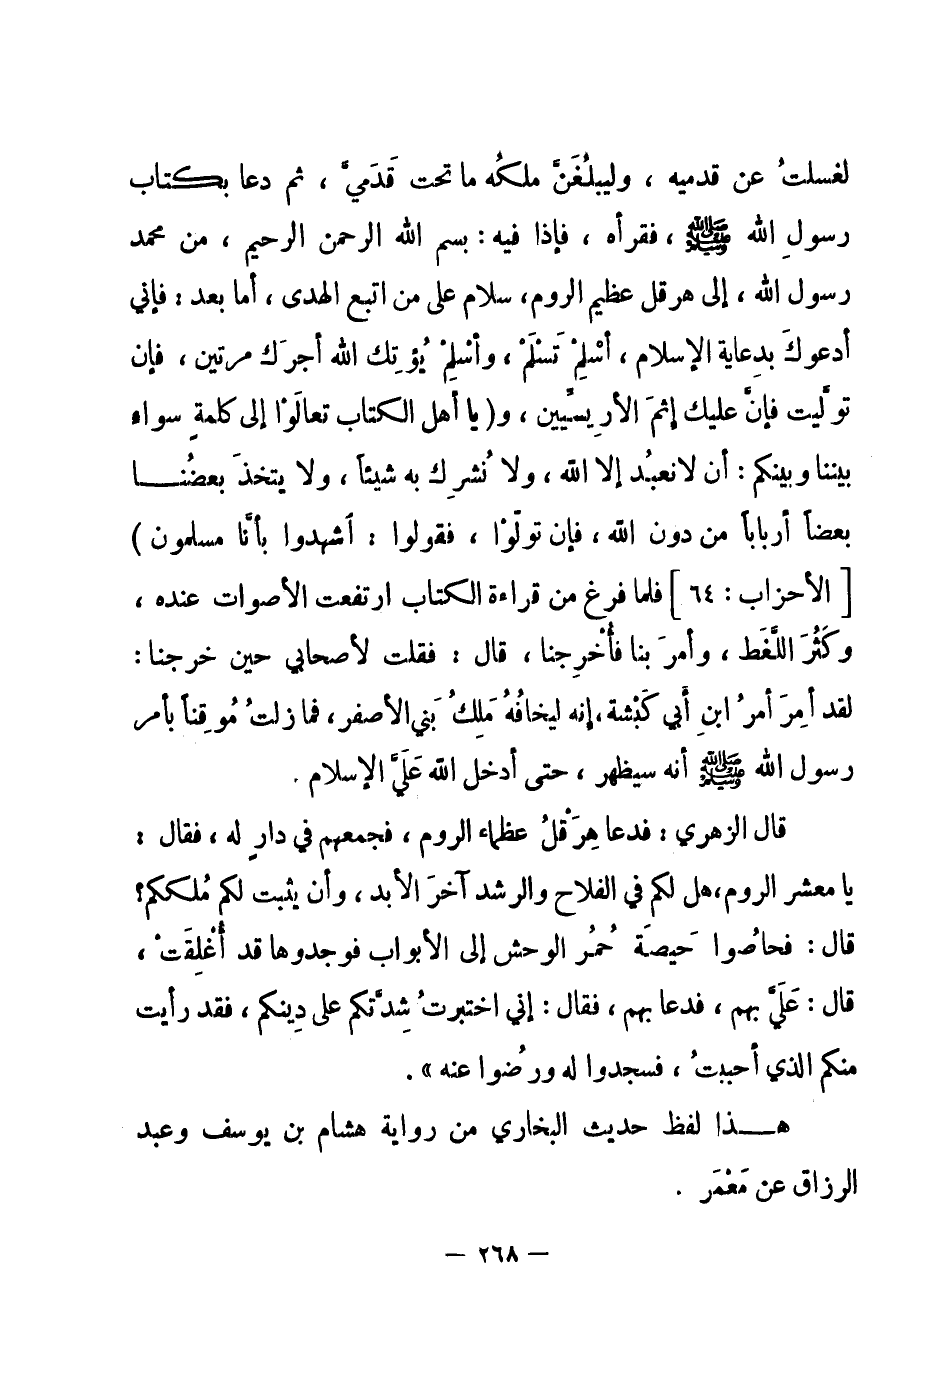 لغسلتُ عن قدميه ، وليبلُغَنَّ ملكُه ما تحت قَدَميَّ ، ثم دعا بكتاب
رسولِ الله ﷺ ، فقرأه ، فإذا فيه : بسم الله الرحمن الرحيم ، من محمد
رسول الله ، إلى هرقل عظيم الروم، سلام على من اتبع الهدى ، أما بعد : فإني
أدعوكَ بدِعاية الإسلام ، أسْلِمْ تَسْلَمْ ، وأسْلِمْ يُؤتِك الله أجرَك مرتين ، فإن
تولَّيت فإنَّ عليك إثمَ الأرِيسيِّين ، و( يا أهل الكتاب تعالَوْا إلى كلمةٍ سواء
بيننا وبينكم : أن لا نعبُد إلا الله ، ولا نُشرِك به شيئاً ، ولا يتخذَ بعضُنــا
بعضاً أرباباً من دون الله ، فإن تولّوْا ، فقولوا : اشهدوا بأنَّا مسلمون )
[ الأحزاب : ٦٤ ] فلما فرغ من قراءة الكتاب ارتفعت الأصوات عنده ،
وكَثُرَ اللَّغَط ، وأمرَ بنا فأُخْرِجنا ، قال : فقلت لأصحابي حين خرجنا :
لقد أمِرَ أمرُ ابنِ أبي كَبْشة ،إنه ليخافُهُ مَلِكُ بَني الأصفر، فما زلتُ مُوقِناً بأمر
رسول الله ﷺ أنه سيظهر ، حتى أدخل الله عَلَيَّ الإسلام .
قال الزهري : فدعا هِرَقْلُ عظماء الروم ، فجمعهم في دارٍ له ، فقال :
يا معشر الروم،هل لكم في الفلاح والرشد آخرَ الأبد ، وأن يثبت لكم مُلككم؟
قال : فحاصُوا حَيصَةَ حُمُر الوحش إلى الأبواب فوجدوها قد أُغْلِقَتْ ،
قال : عَلَيَّ بهم ، فدعا بهم ، فقال : إني اختبرتُ شِدَّتكم على دِينكم ، فقد رأيت
منكم الذي أحببتُ ، فسجدوا له ورضُوا عنه » .
هــذا لفظ حديث البخاري من رواية هشام بن يوسف وعبد
الرزاق عن مَعْمَر .
— ٢٦٨ —